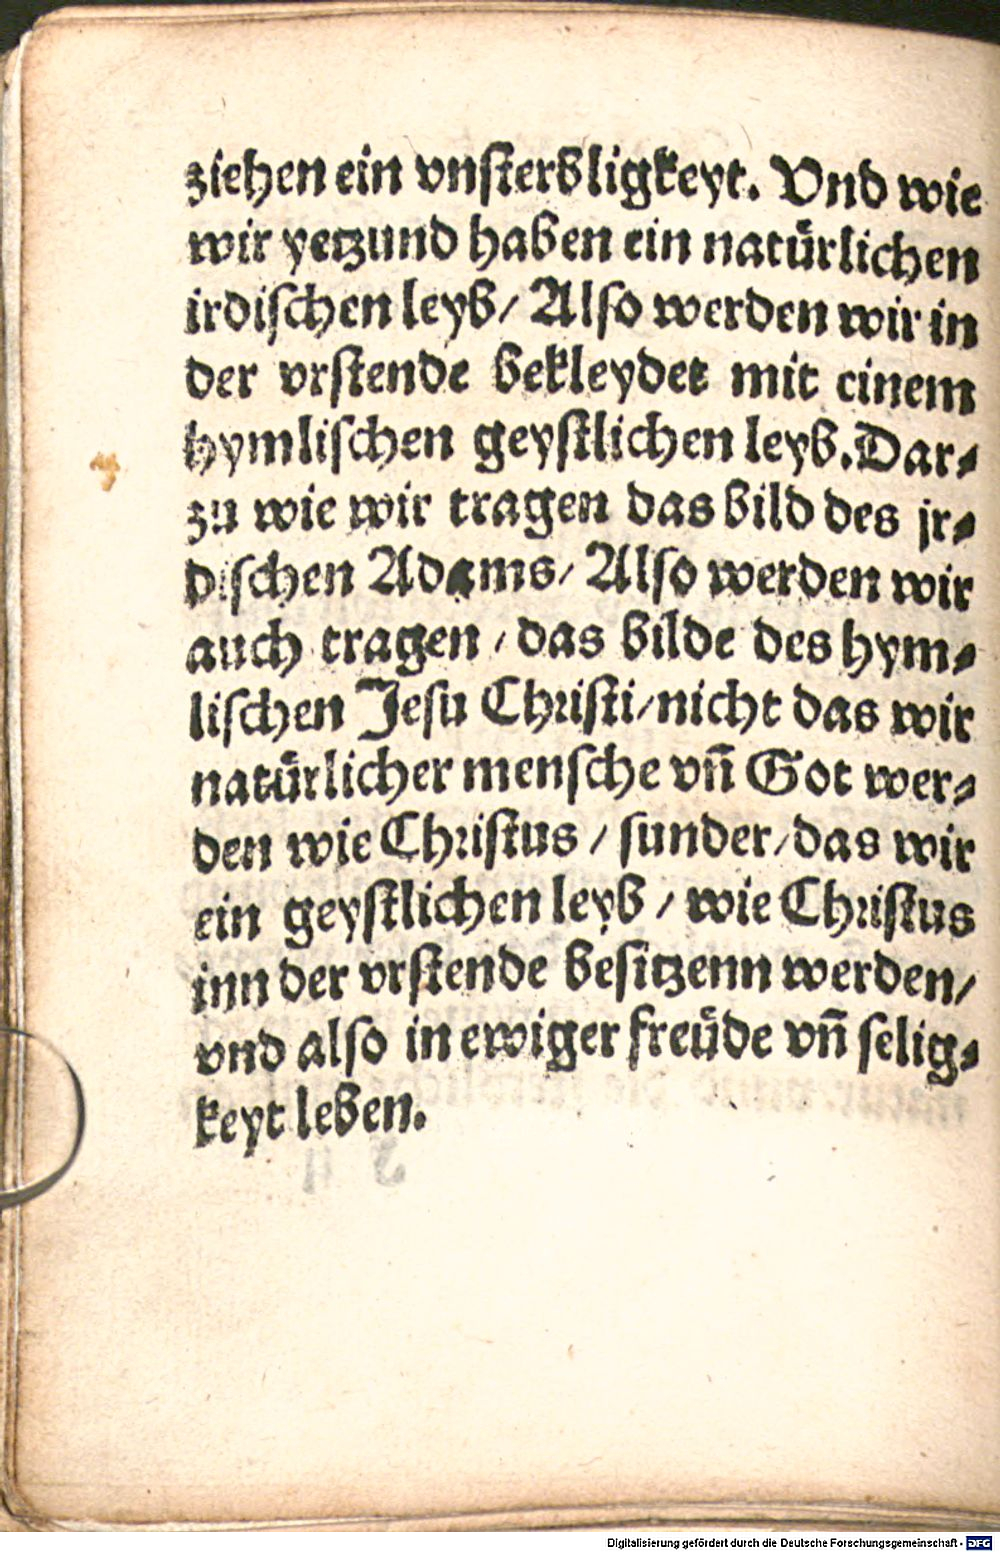 ziehen ein vnsterbligkeyt. Vnd wie
wir yetzund haben ein natürlichen
irdischen leyb/ Also werden wir in
der vrstende bekleydet mit einem
hymlischen geystlichen leyb. Dar⸗
zu wie wir tragen das bild des jr⸗
dischen Adams/ Also werden wir
auch tragen/ das bilde des hym⸗
lischen Jesu Christi/ nicht das wir
natürlicher mensche vñ Got wer⸗
den wie Christus/ sunder/ das wir
ein geystlichen leyb/ wie Christus
inn der vrstende besitzenn werden/
vnd also in ewiger freüde vñ selig⸗
keyt leben.
Digitalisierung gefördert durch die Deutsche Forschungsgemeinschaft - DFG